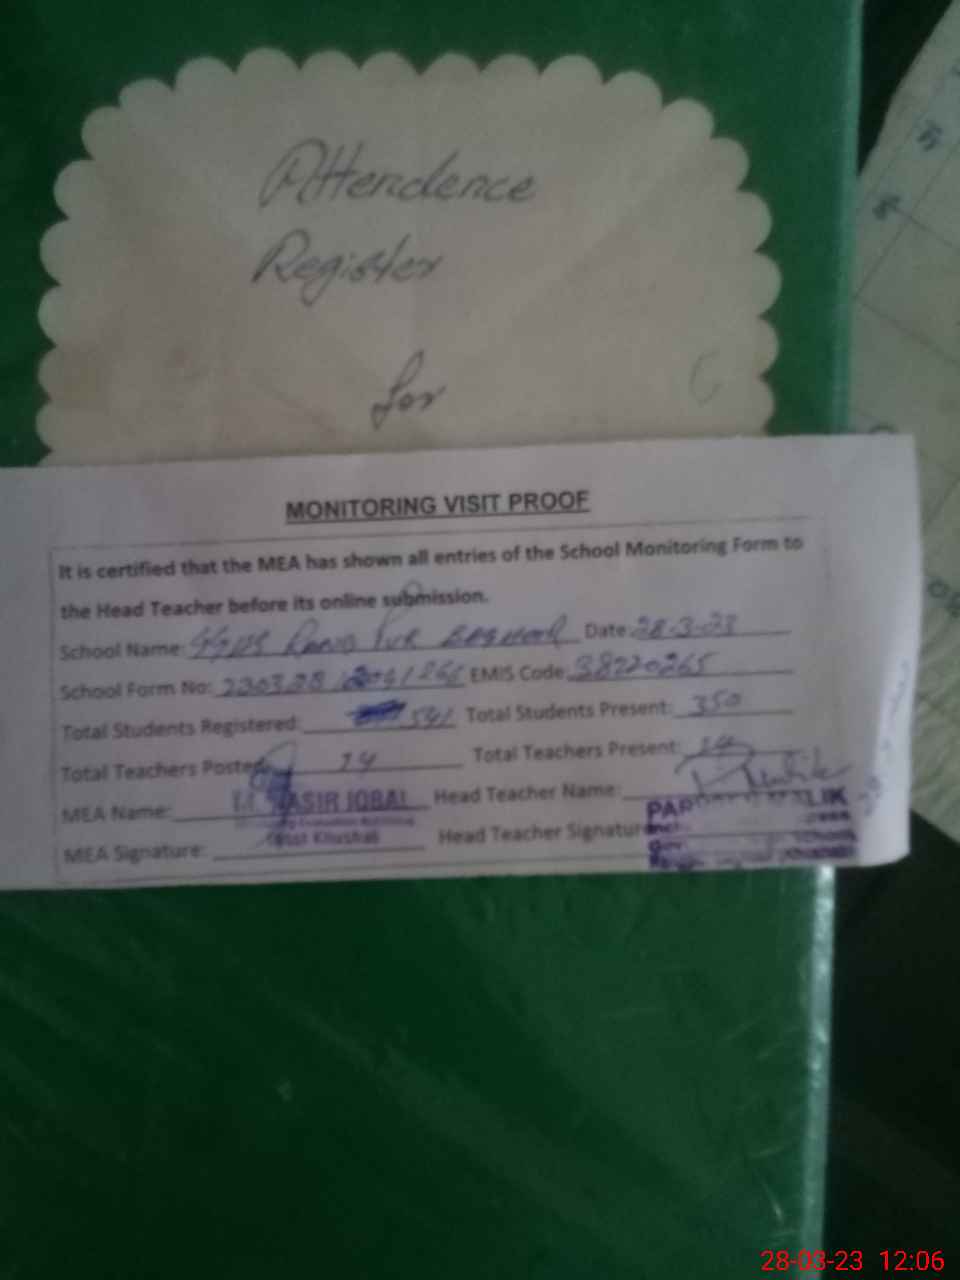 Attendence
Register
for
MONITORING VISIT PROOF
It is certified that the MEA has shown all entries of the School Monitoring Form to
the Head Teacher before its online submission.
School Name: Pur Date: 28-3-23
School Form No: 230328 / 265 EMIS Code: 38220265
Total Students Registered: 541 Total Students Present: 350
Total Teachers Posted: 14 Total Teachers Present: 14
MEA Name: ASIR IQBAL Head Teacher Name:
MEA Signature: Khushab Head Teacher Signature
28-03-23 12:06